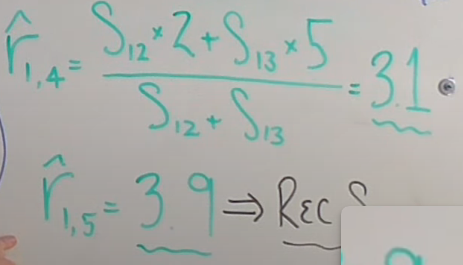 r̂₁,₄ = (S₁₂ × 2 + S₁₃ × 5) / (S₁₂ + S₁₃) = 3.1
r̂₁,₅ = 3.9 ⇒ REC